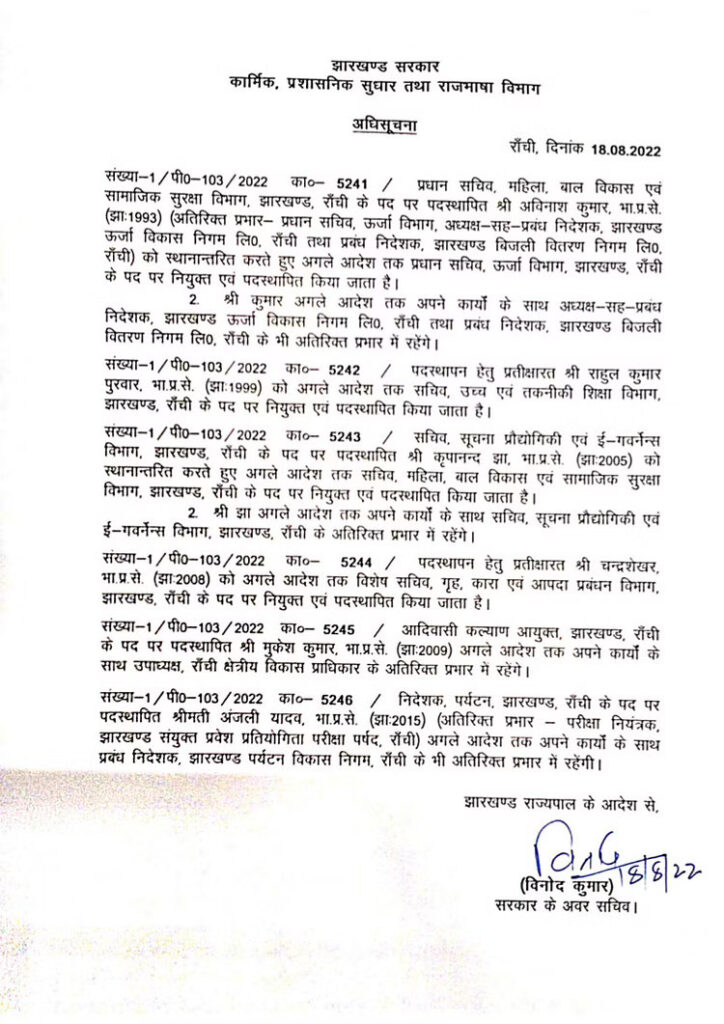 झारखण्ड सरकार
कार्मिक, प्रशासनिक सुधार तथा राजभाषा विभाग
अधिसूचना
राँची, दिनांक 18.08.2022
संख्या–1/पी0–103/2022 का०– 5241 / प्रधान सचिव, महिला, बाल विकास एवं
सामाजिक सुरक्षा विभाग, झारखण्ड, राँची के पद पर पदस्थापित श्री अविनाश कुमार, भा.प्र.से.
(झाः1993) (अतिरिक्त प्रभार– प्रधान सचिव, ऊर्जा विभाग, अध्यक्ष–सह–प्रबंध निदेशक, झारखण्ड
ऊर्जा विकास निगम लि0, राँची तथा प्रबंध निदेशक, झारखण्ड बिजली वितरण निगम लि0,
राँची) को स्थानान्तरित करते हुए अगले आदेश तक प्रधान सचिव, ऊर्जा विभाग, झारखण्ड, राँची
के पद पर नियुक्त एवं पदस्थापित किया जाता है।
2. श्री कुमार अगले आदेश तक अपने कार्यों के साथ अध्यक्ष–सह–प्रबंध
निदेशक, झारखण्ड ऊर्जा विकास निगम लि0, राँची तथा प्रबंध निदेशक, झारखण्ड बिजली
वितरण निगम लि0, राँची के भी अतिरिक्त प्रभार में रहेंगे।
संख्या–1/पी0–103/2022 का०– 5242 / पदस्थापन हेतु प्रतीक्षारत श्री राहुल कुमार
पुरवार, भा.प्र.से. (झाः1999) को अगले आदेश तक सचिव, उच्च एवं तकनीकी शिक्षा विभाग,
झारखण्ड, राँची के पद पर नियुक्त एवं पदस्थापित किया जाता है।
संख्या–1/पी0–103/2022 का०– 5243 / सचिव, सूचना प्रौद्योगिकी एवं ई–गवर्नेन्स
विभाग, झारखण्ड, राँची के पद पर पदस्थापित श्री कृपानन्द झा, भा.प्र.से. (झाः2005) को
स्थानान्तरित करते हुए अगले आदेश तक सचिव, महिला, बाल विकास एवं सामाजिक सुरक्षा
विभाग, झारखण्ड, राँची के पद पर नियुक्त एवं पदस्थापित किया जाता है।
2. श्री झा अगले आदेश तक अपने कार्यों के साथ सचिव, सूचना प्रौद्योगिकी एवं
ई–गवर्नेन्स विभाग, झारखण्ड, राँची के अतिरिक्त प्रभार में रहेंगे।
संख्या–1/पी0–103/2022 का०– 5244 / पदस्थापन हेतु प्रतीक्षारत श्री चन्द्रशेखर,
भा.प्र.से. (झाः2008) को अगले आदेश तक विशेष सचिव, गृह, कारा एवं आपदा प्रबंधन विभाग,
झारखण्ड, राँची के पद पर नियुक्त एवं पदस्थापित किया जाता है।
संख्या–1/पी0–103/2022 का०– 5245 / आदिवासी कल्याण आयुक्त, झारखण्ड, राँची
के पद पर पदस्थापित श्री मुकेश कुमार, भा.प्र.से. (झाः2009) अगले आदेश तक अपने कार्यों के
साथ उपाध्यक्ष, राँची क्षेत्रीय विकास प्राधिकार के अतिरिक्त प्रभार में रहेंगे।
संख्या–1/पी0–103/2022 का०– 5246 / निदेशक, पर्यटन, झारखण्ड, राँची के पद पर
पदस्थापित श्रीमती अंजली यादव, भा.प्र.से. (झाः2015) (अतिरिक्त प्रभार – परीक्षा नियंत्रक,
झारखण्ड संयुक्त प्रवेश प्रतियोगिता परीक्षा पर्षद, राँची) अगले आदेश तक अपने कार्यों के साथ
प्रबंध निदेशक, झारखण्ड पर्यटन विकास निगम, राँची के भी अतिरिक्त प्रभार में रहेंगी।
झारखण्ड राज्यपाल के आदेश से,
18/8/22
(विनोद कुमार)
सरकार के अवर सचिव।